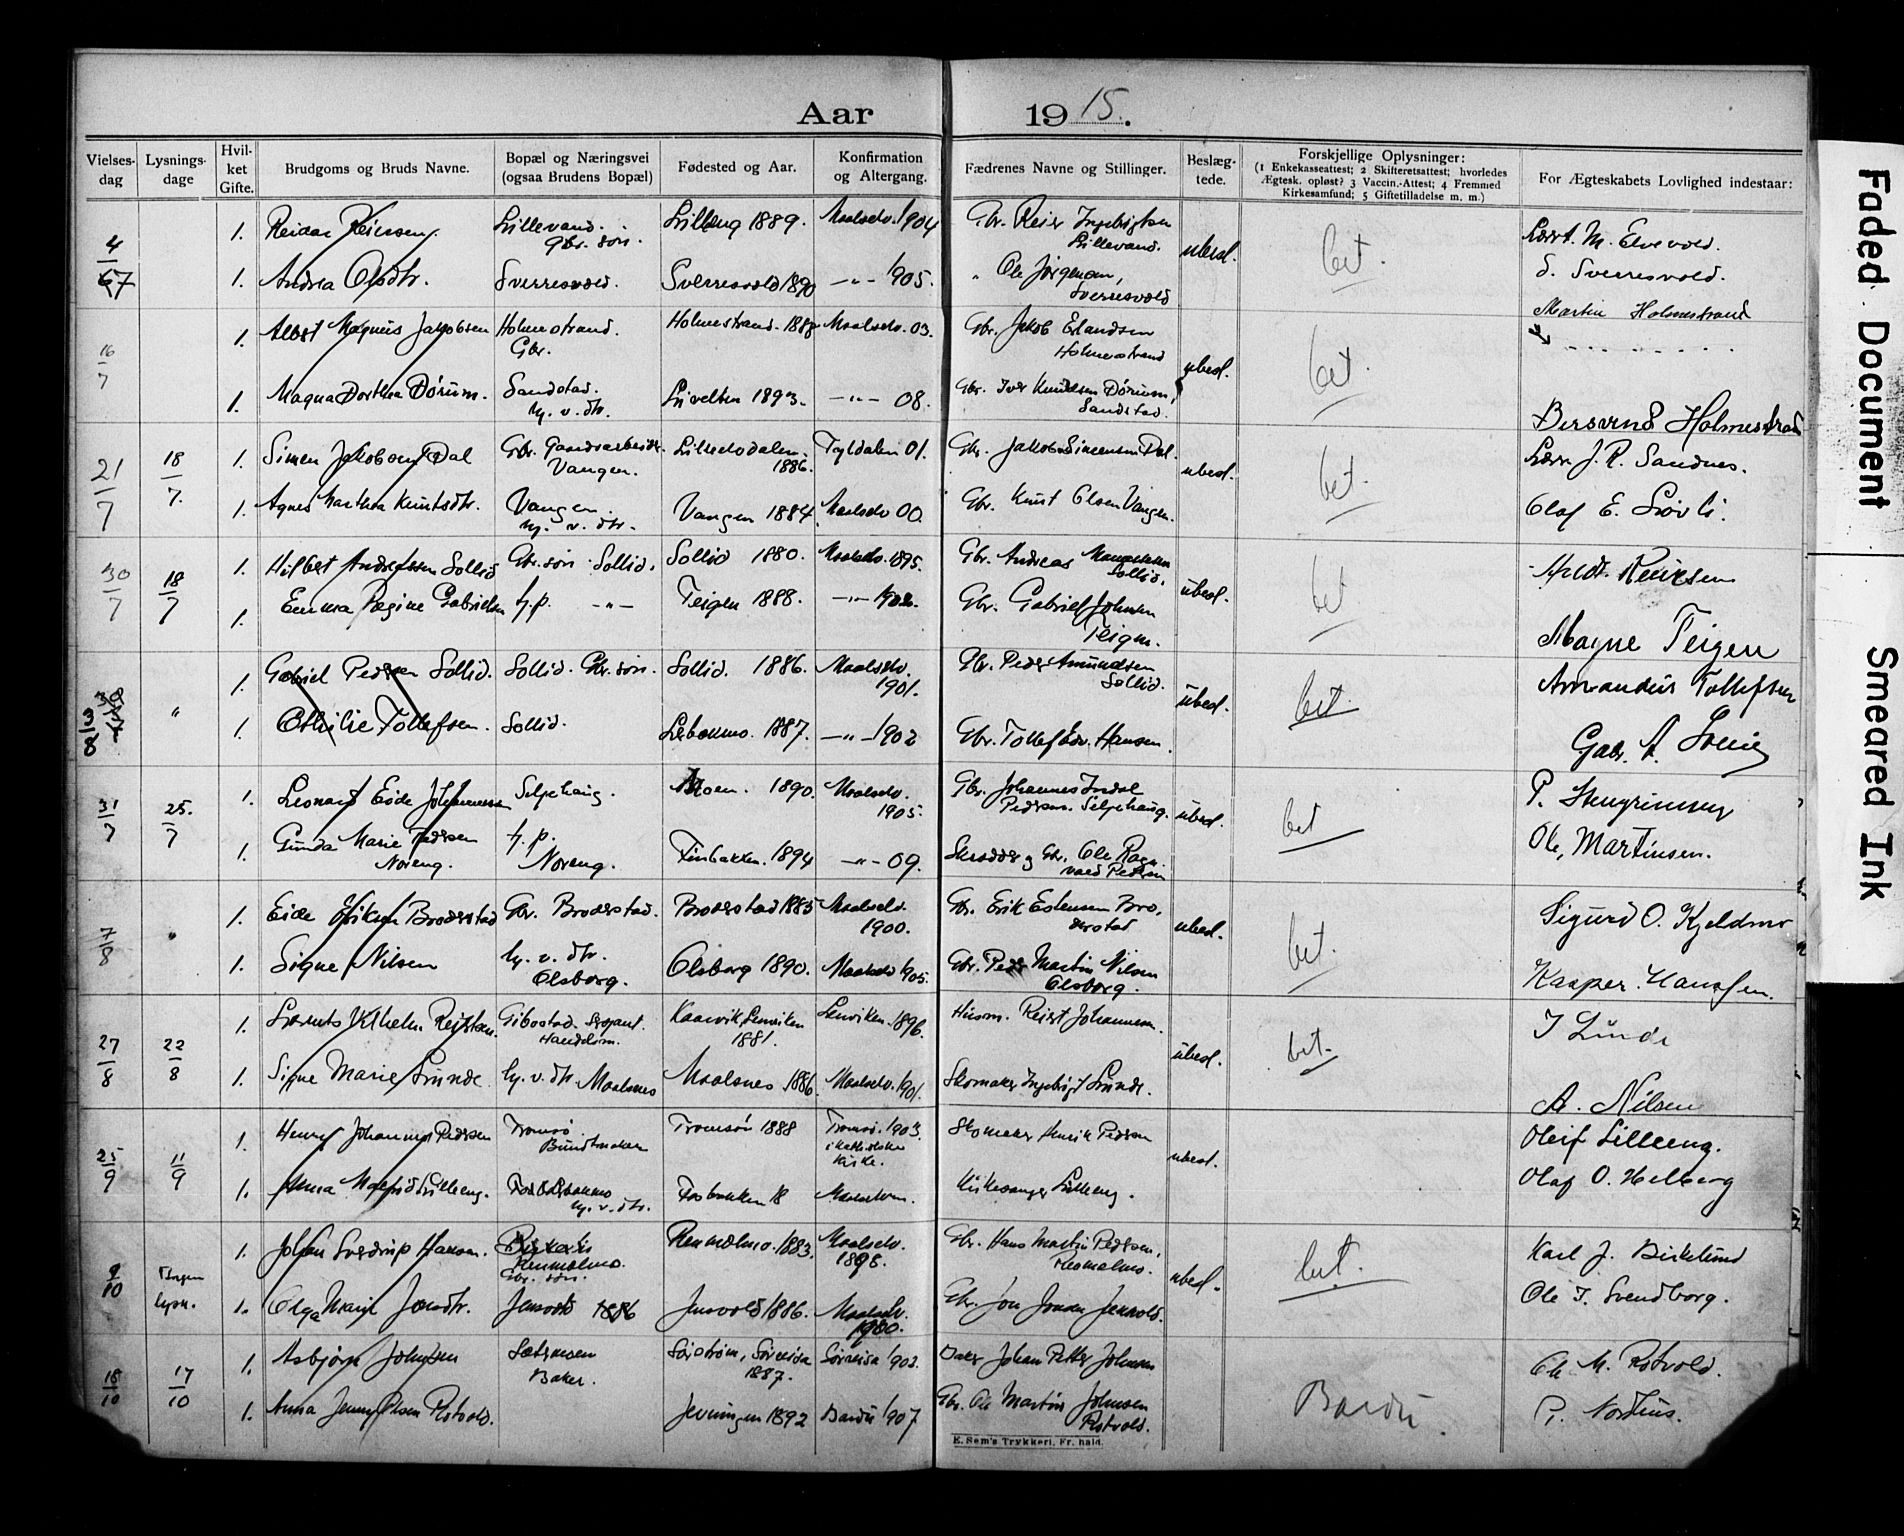 Aar 1915.
Vielses-dag
Lysnings-dage
Hvil-ket Gifte.
Brudgoms og Bruds Navne.
Bopæl og Næringsvei (ogsaa Brudens Bopæl)
Fødested og Aar.
Konfirmation og Altergang.
Fædrenes Navne og Stillinger.
Beslæg-tede.
Forskjellige Oplysninger:
(1 Enkekasseattest; 2 Skifteretsattest; hvorledes
Ægtesk. opløst? 3 Vaccin.-Attest; 4 Fremmed
Kirkesamfund; 5 Giftetilladelse m. m.)
For Ægteskabets Lovlighed indestaar:
4/7 1. Reidar Reiersen. Lillevand. Gbr. søn. Lilleng 1889. Maalselv. 1904 Gbr. Reier Ingebrigtsen Lillevand. ubesl. bet. M. Elvevold.
1. Andrea Olsdtr. Sverresvold. Sverresvold 1890 —"— 1905. " Ole Jørgensen, Sverresvold S. Sverresvold.
16/7 1. Albert Magnus Jakobsen Holmestrand. Gbr. Holmestrand. 1888 Maalselv. 03. Gbr. Jakob Erlandsen Holmestrand ubesl. bet. Martin Holmestrand
1. Magna Dorthea Dørum. Sandstad. hj. v. dtr. 1893. —"— 08. Gbr. Iver Knudsen Dørum, Sandstad. Bersvend Holmestrand
21/7 18/7. 1. Simen Jakobsen Dal Gbr. Vangen. Lilleelvdalen. 1886. Tyldalen 01. Gbr. Jakob Simensen Dal. ubesl. bet. J. R. Sandnes.
1. Agnes Marthea Knutsdtr. Vangen. hj. v. dtr. Vangen 1884 Maalselv 00. Gbr. Knut Olsen Vangen. Olaf E. Løvli.
30/7 18/7 1. Hilbert Andreassen Sollid Gbr. søn Sollid. Sollid 1880. Maalselv. 1895. Gbr. Andreas Sollid. ubesl. bet
1. Emma Regine Gabrielsen hj.p. —"— Teigen 1888. —"— 1902. Gbr. Gabriel Johnsen Teigen. Magne Teigen
13/8 " 1. Gabriel Pedersen Sollid. Sollid. Gbr. søn. Sollid. 1886. Maalselv. 1901. Gbr. Peder Amundsen Sollid. ubesl. bet. Amandus Tollefsen
1. Othilie Tollefsen. Sollid. 1887. —"— 1902 Gbr. Tollef Edv. Hansen. Gabr. A.
31/7 25./7 1. Leonard Eide Johannessen Seljehaug. Moen. 1890. Maalselv. 1905. Gbr. Johannes Indal Pedersen. Seljehaug. ubesl. bet P.
1. Gunda Marie Pedersen Noreng. hj. p. Noreng. Finbakken. 1894 —"— 09. Skrædder og Gbr. Ole Ragnvald Pedersen Ole, Martinsen.
7/8 " 1. Eide Eriksen Broderstad Gbr. Broderstad. Broderstad 1885 Maalselv. 1900. Gbr. Erik Estensen Broderstad ubesl. bet. Sigurd O. Kjeldmo
1. Signe Nilsen hj. v. dtr. Olsborg. Olsborg 1890. Maalselv 1905. Gbr. Peder Martin Nilsen Olsborg. Kasper Hanssen.
27/8 22/8 1. Vilhelm Reiersen. Gibostad. Handelsm. Kaarvik, Lenviken 1881. Lenviken. 1896. Husm. Reiert Johannesen. ubesl. bet. I Lunde
1. Signe Marie Lunde hj. v. dtr. Maalsnes Maalsnes 1886. Maalselv. 1901. Skomaker Ingebrigt Lunde. A. Nilsen
25/9 11/9 1. Henry Johannes Pedersen Tromsø Bundtmaker Tromsø 1888 Tromsø. 1903. i katholske kirke. Skomaker Henrik Pedersen ubesl. Oleif Lilleeng.
1. Anna Malfrid Lilleeng. hj. v. dtr. Fosbakken 18 Kirkesanger Lilleeng. Olaf O. Helberg
9/10 Ingen lysn. 1. Johan Sverdrup Hansen. Renmælmo. Gbr. søn. Renmælmo. 1883. Maalselv. 1898. Gbr. Hans Martin Pedersen, Renmælmo. ubesl. bet. Karl J. Birkelund
1. Olga Marie Jonsdtr. Jensvold 1886 Jensvold 1886. Maalselv. 1900. Gbr. Jon Jonsen Jensvold. Ole I. Svendborg.
18/10 17/10 1. Asbjørn Johnsen Sætermoen Baker. Sørstrøm, Sørreisa 1887. Sørreisa 1902. Johan Petter Johnsen Bardu. Ole M. Rotvold.
1. Anna Jenny Olsen Rotvold. 1892 Bardu 1907 Gbr. Ole Martin Johnsen Rotvold. P. Nordhus.
E. Sem's Trykkeri, Fr. hald.
Faded Document
Smeared Ink